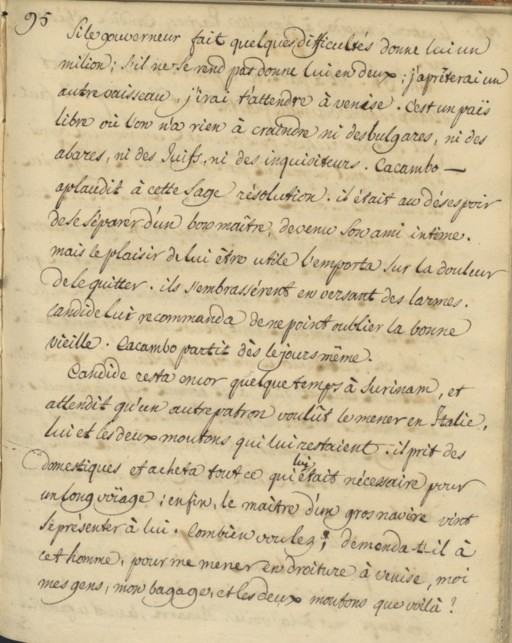 95
Si le gouverneur fait quelques difficultés donne lui un
milion; s'il ne se rend pas donne lui en deux; j'aprêterai un
autre vaisseau, j'irai t'attendre à venise. C'est un païs
libre où l'on n'a rien à craindre ni des bulgares, ni des
abares, ni des Juifs, ni des inquisiteurs. Cacambo —
aplaudit à cette sage résolution. il était au désespoir
de se séparer d'un bon maître, devenu son ami intime.
mais le plaisir de lui être utile l'emporta sur la douleur
de le quitter. ils s'embrassérent en versant des larmes.
Candide lui recommanda de ne point oublier la bonne
vieille. Cacambo partit dès le jour même.
Candide resta encor quelque temps à Surinam, et
attendit qu'un autre patron voulût le mener en Italie,
lui et les deux moutons qui lui restaient. il prit des
domestiques et acheta tout ce qui lui était nécessaire pour
un long voïage; enfin, le maître d'un gros navire vint
se présenter à lui. Combien voulez, demanda t-il à
cet homme, pour me mener en droiture à venise, moi
mes gens, mon bagage, et les deux moutons que voilà?